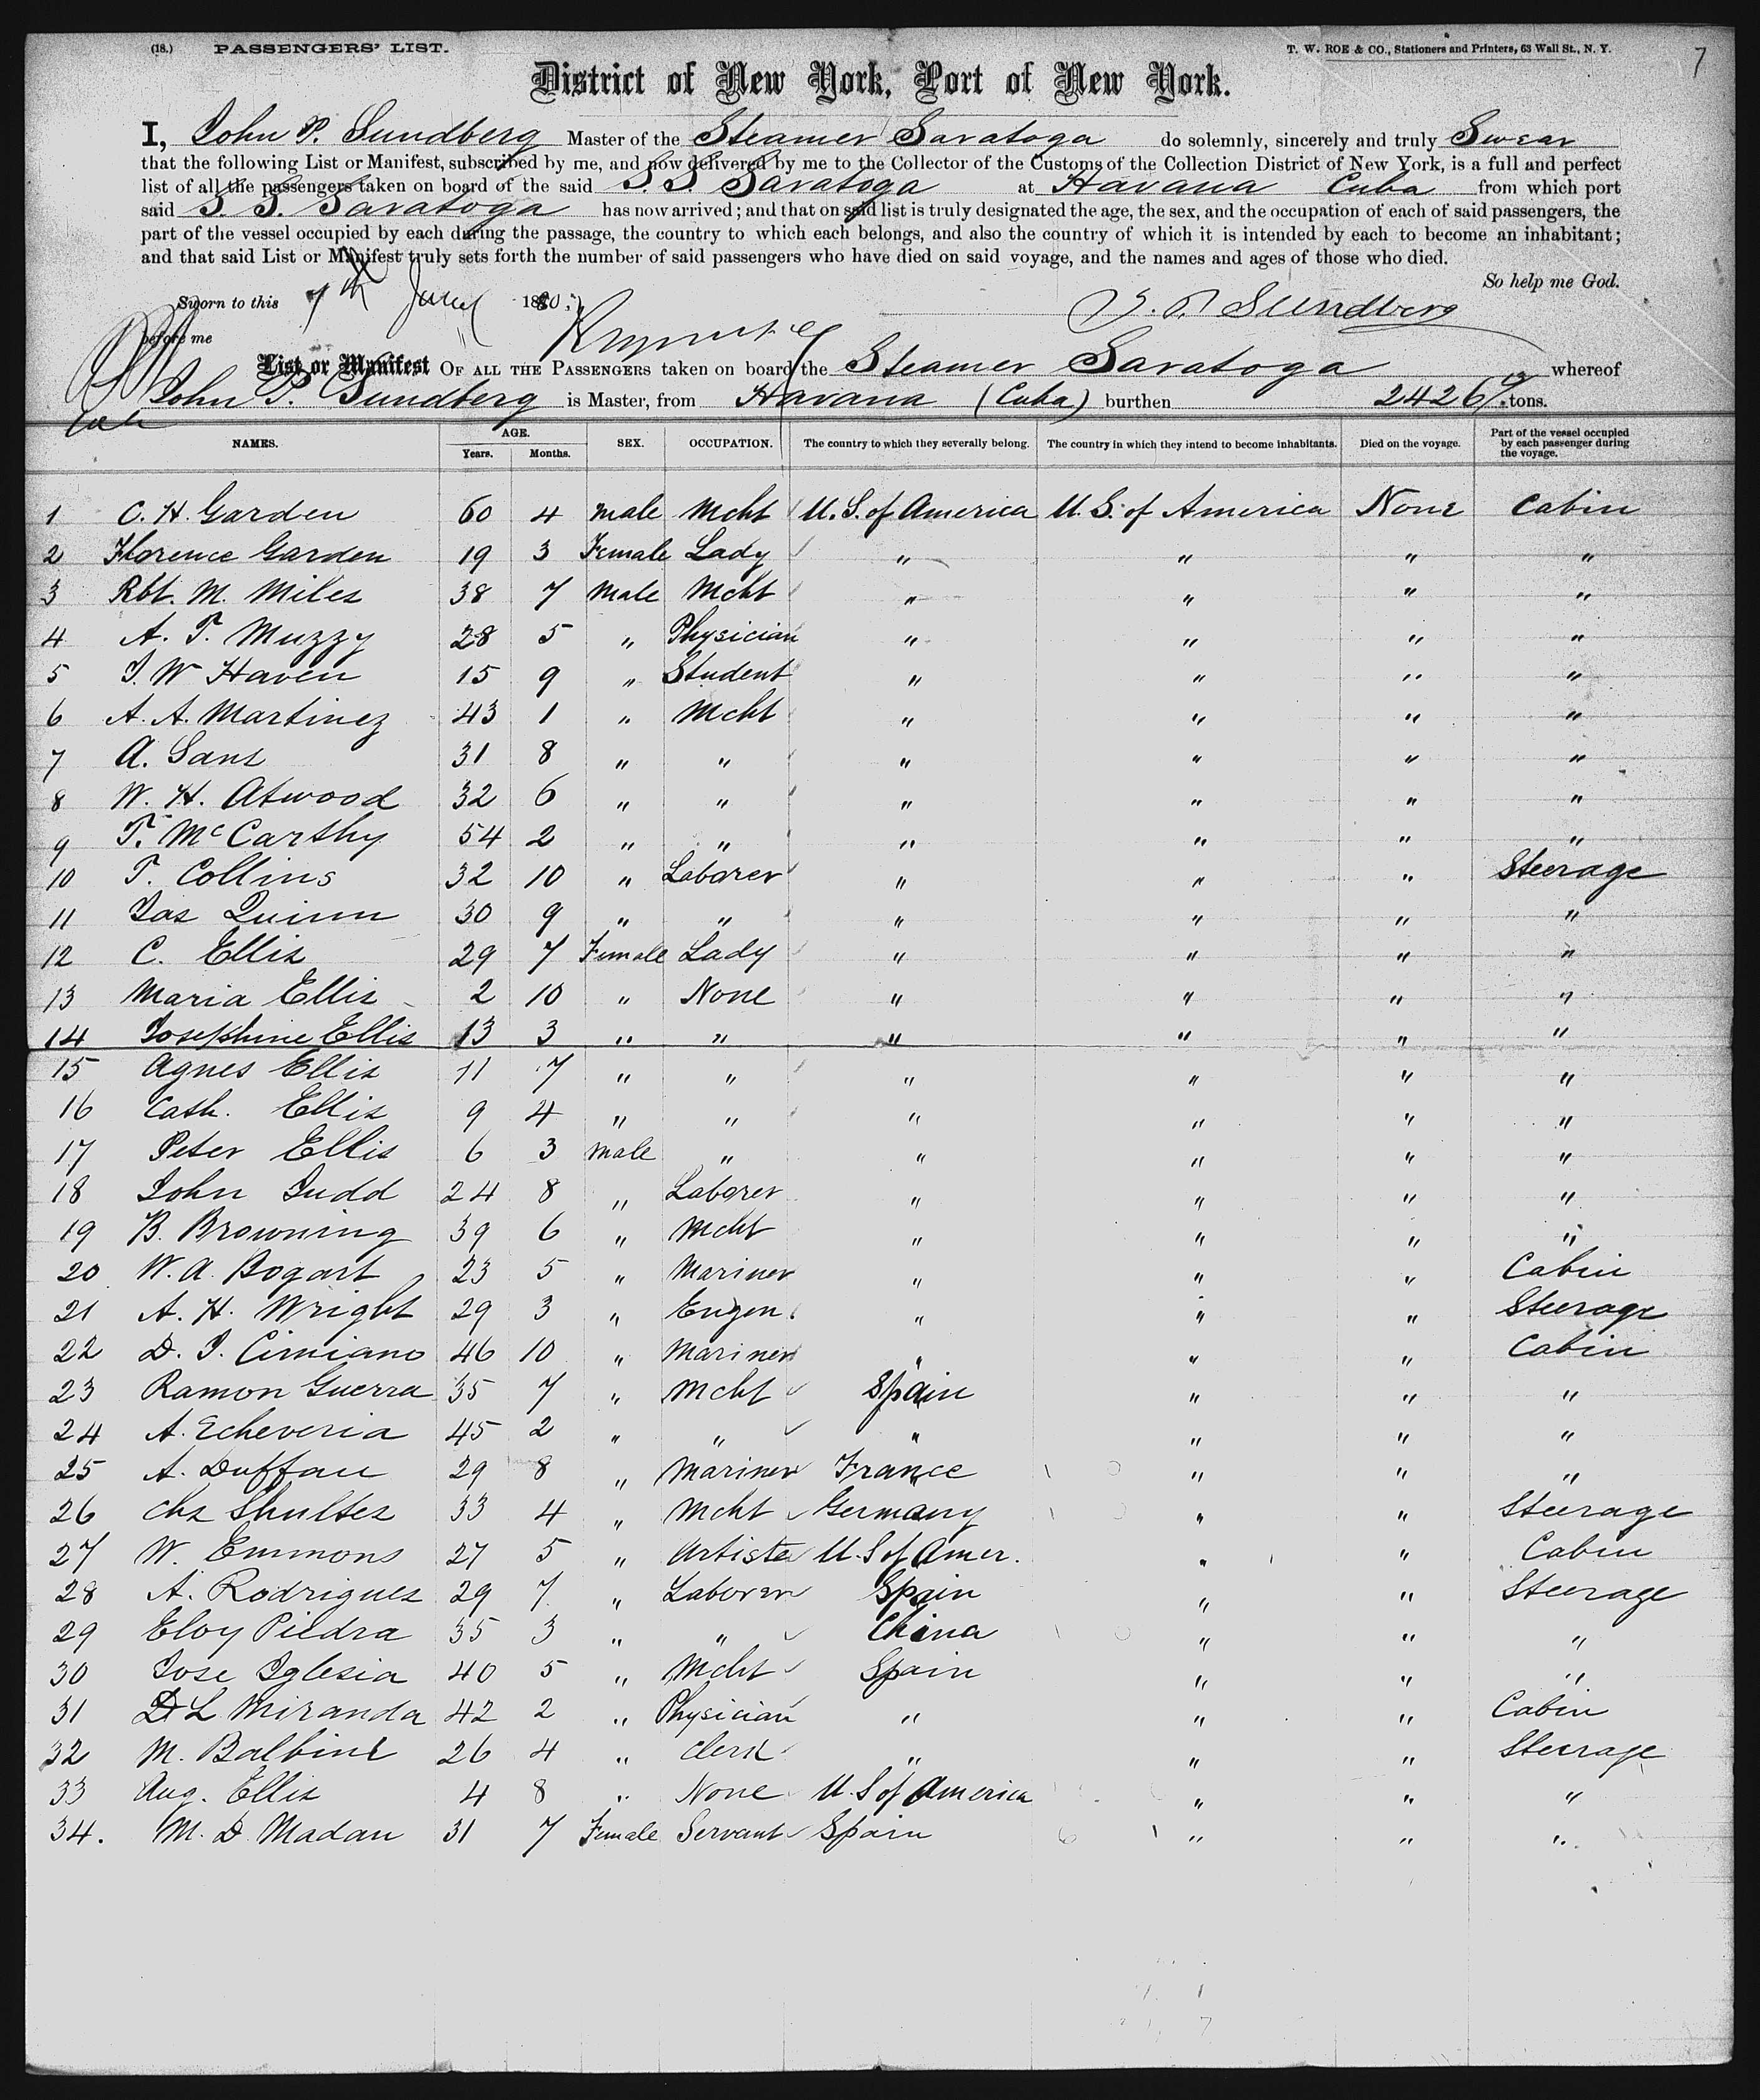 (18.) PASSENGERS' LIST. T. W. ROE & CO., Stationers and Printers, 63 Wall St., N. Y. 7
District of New York, Port of New York.
I, John P. Sundberg Master of the Steamer Saratoga do solemnly, sincerely and truly Swear
that the following List or Manifest, subscribed by me, and now delivered by me to the Collector of the Customs of the Collection District of New York, is a full and perfect
list of all the passengers taken on board of the said S. S. Saratoga at Havana Cuba from which port
said S. S. Saratoga has now arrived; and that on said list is truly designated the age, the sex, and the occupation of each of said passengers, the
part of the vessel occupied by each during the passage, the country to which each belongs, and also the country of which it is intended by each to become an inhabitant;
and that said List or Manifest truly sets forth the number of said passengers who have died on said voyage, and the names and ages of those who died.
So help me God.
Sworn to this 7th 1880. J. P. Sundberg
before me
List or Manifest OF ALL THE PASSENGERS taken on board the Steamer Saratoga whereof
John P. Sundberg is Master, from Havana (Cuba) burthen 2426 tons.
NAMES. AGE. SEX. OCCUPATION. The country to which they severally belong. The country in which they intend to become inhabitants. Died on the voyage. Part of the vessel occupied by each passenger during the voyage.
Years. Months.
1 C. H. Garden 60 4 Male Mcht U.S. of America U.S. of America None Cabin
2 Florence Garden 19 3 Female Lady " " " "
3 Rbt. M. Miles 38 7 Male Mcht " " " "
4 A. T. Muzzy 28 5 " Physician " " " "
5 J. W Haven 15 9 " Student " " " "
6 A. A. Martinez 43 1 " Mcht " " " "
7 A. Sans 31 8 " " " " " "
8 W. H. Atwood 32 6 " " " " " "
9 T. McCarthy 54 2 " " " " " "
10 T. Collins 32 10 " Laborer " " " Steerage
11 Jas Quinn 30 9 " " " " " "
12 C. Ellis 29 7 Female Lady " " " "
13 Maria Ellis 2 10 " None " " " "
14 Josephine Ellis 13 3 " " " " " "
15 Agnes Ellis 11 7 " " " " " "
16 Cath. Ellis 9 4 " " " " " "
17 Peter Ellis 6 3 Male " " " " "
18 John Judd 24 8 " Laborer " " " "
19 B. Browning 39 6 " Mcht " " " "
20 W. A. Bogart 23 5 " Mariner " " " Cabin
21 A. H. Wright 29 3 " Engen. " " " Steerage
22 D. J. Cirniano 46 10 " Mariner " " " Cabin
23 Ramon Guerra 35 7 " Mcht Spain " " "
24 A. Echeveria 45 2 " " " " " "
25 A. Duffau 29 8 " Mariner France " " "
26 Chs Shultes 33 4 " Mcht Germany " " Steerage
27 W. Emmons 27 5 " Artiste U.S of Amer. " " Cabin
28 A. Rodrigues 29 7 " Laborer Spain " " Steerage
29 Eloy Piedra 35 3 " " China " " "
30 Jose Iglesia 40 5 " Mcht Spain " " "
31 D L Miranda 42 2 " Physician " " " Cabin
32 M. Balbine 26 4 " Clerk " " " Steerage
33 Aug. Ellis 4 8 " None U.S of America " " "
34. M. D. Madan 31 7 Female Servant Spain " " "